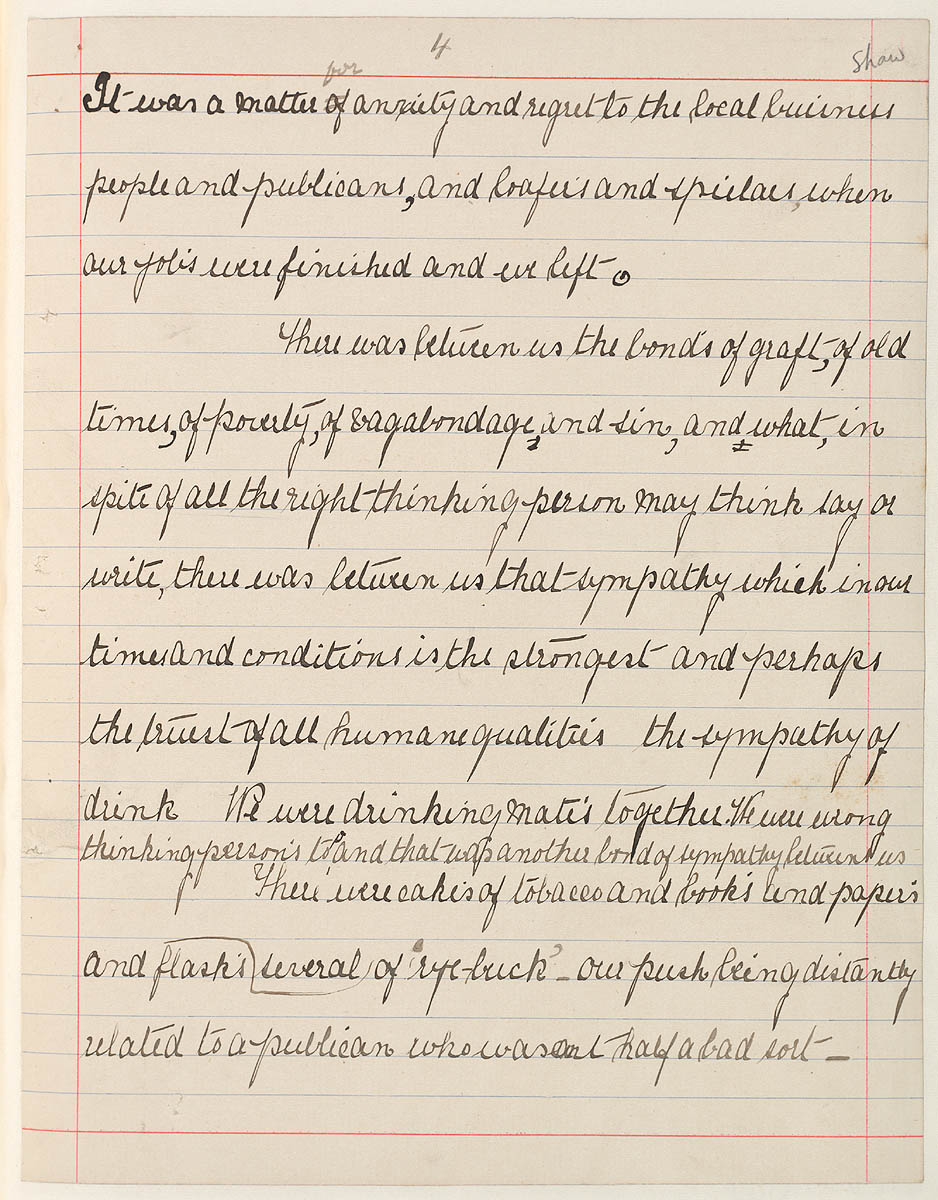 4
Shaw
for
It was a matter of anxiety and regret to the local buisness
people and publicans, and loafers and spielaes, when
our jobs were finished and we left.
There was between us the bonds of graft, of old
times, of poverty, of vagabondage, and sin, and what, in
spite of all the right thinking person may think say or
write, there was between us that sympathy which in our
times and conditions is the strongest and perhaps
the truest of all human equalities the sympathy of
drink We were drinking mates together. We were wrong
thinking persons too and that was another bond of sympathy between us
There were cakes of tobacco and books and papers
and flasks several of 'rye-buck' – our push being distantly
related to a publican who wasent half a bad sort –